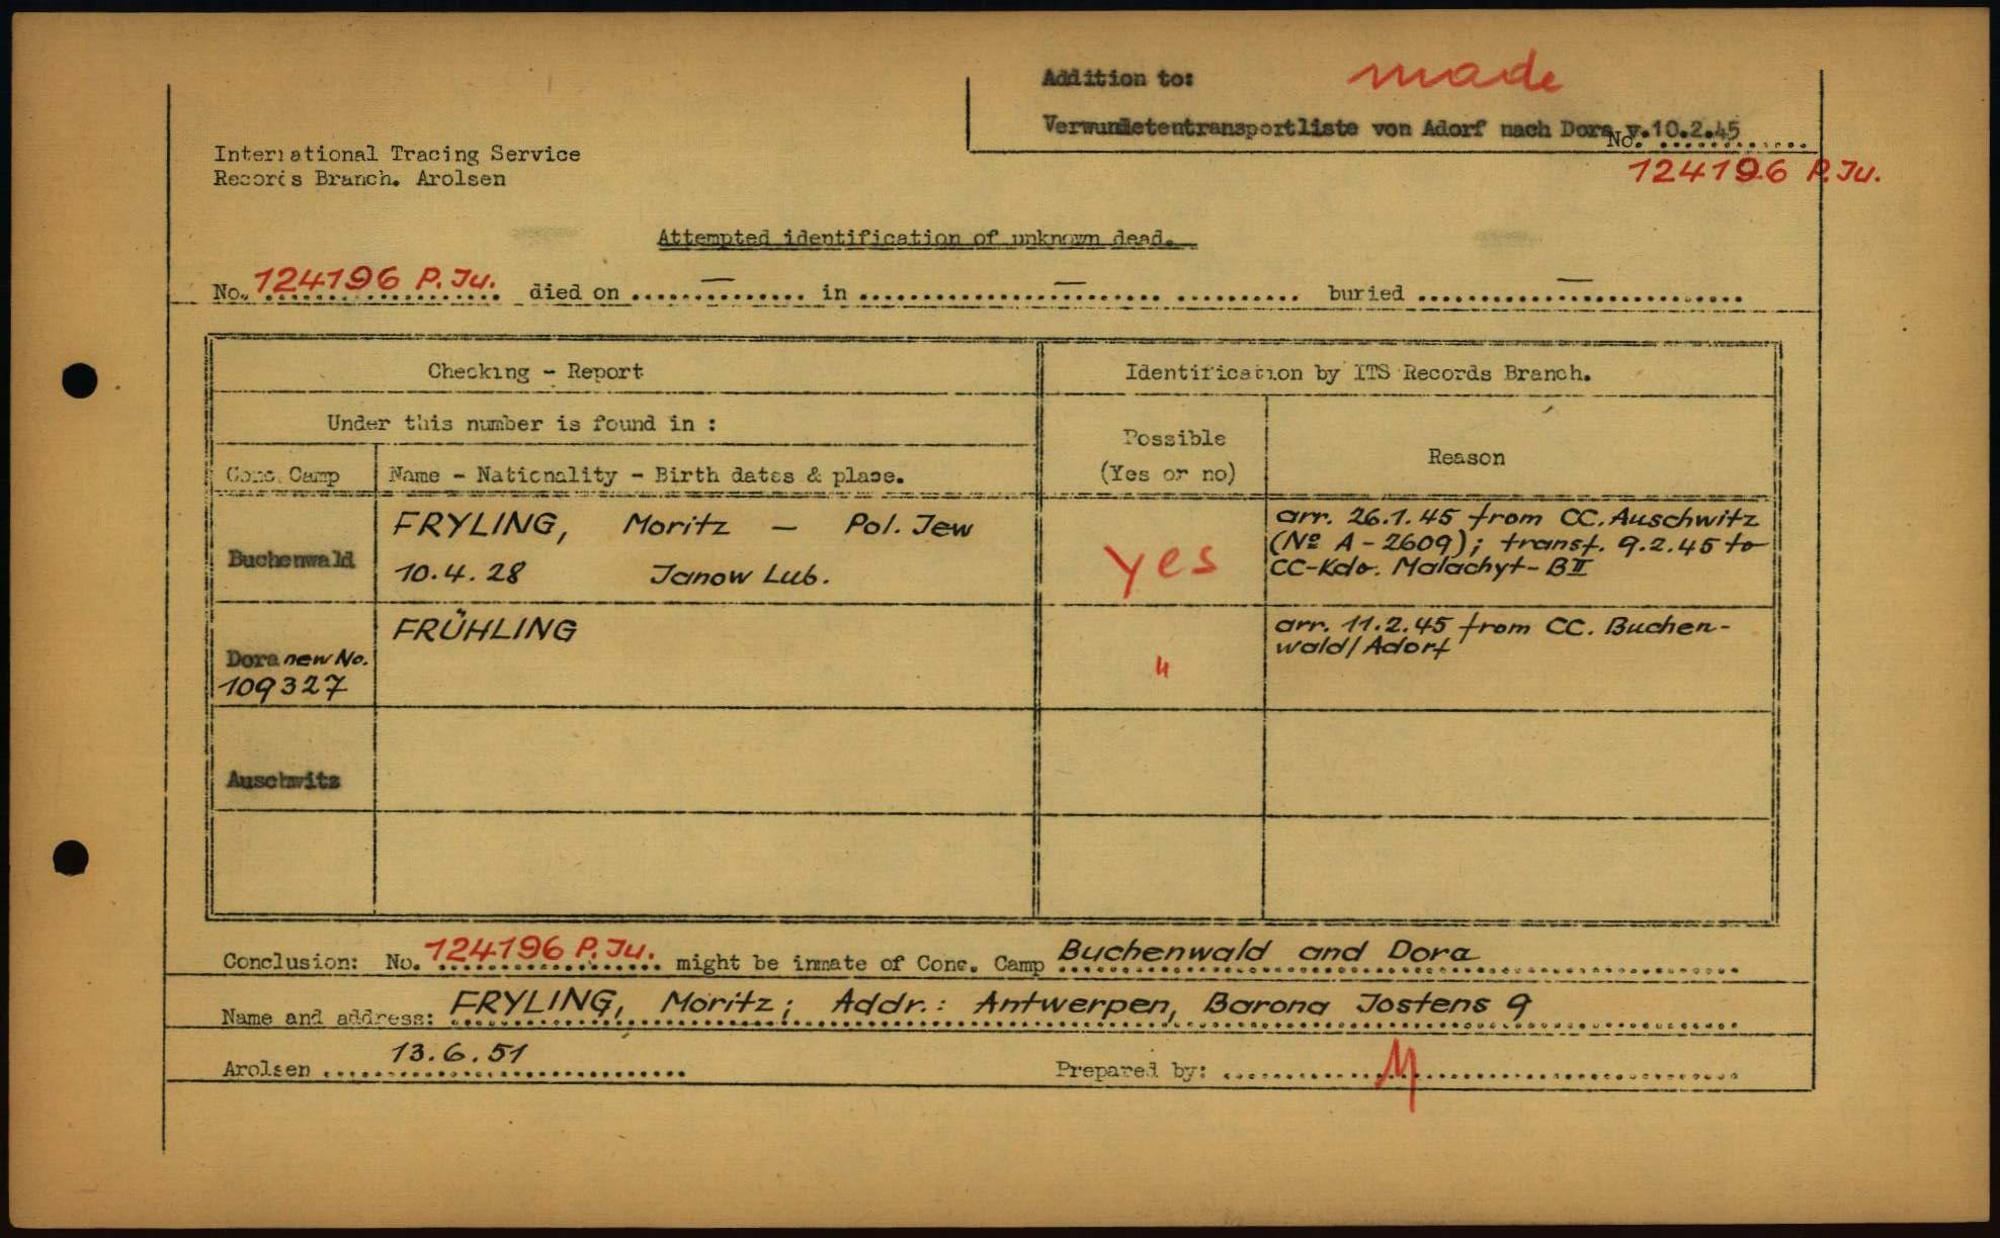 Addition to: made
Verwundetentransportliste von Adorf nach Dora v.10.2.45
No. ............
124196 P. Ju.
International Tracing Service
Records Branch. Arolsen
Attempted identification of unknown dead.
No. 124196 P. Ju. died on ..... — ..... in ..... — ..... buried ..... — .....
Checking - Report
Identification by ITS Records Branch.
Under this number is found in :
Possible
(Yes or no)
Reason
Conc. Camp
Name - Nationality - Birth dates & place.
Buchenwald
FRYLING, Moritz — Pol. Jew
10.4.28 Janow Lub.
yes
arr. 26.1.45 from CC. Auschwitz
(Nº A-2609); transf. 9.2.45 to
CC-Kdo. Malachyt-BII
Dora new No.
109327
FRÜHLING
"
arr. 11.2.45 from CC. Buchen-
wald/Adorf
Auschwitz
Conclusion: No. 124196 P. Ju. might be inmate of Conc. Camp Buchenwald and Dora
Name and address: FRYLING, Moritz; Addr.: Antwerpen, Barona Jostens 9
Arolsen 13.6.51
Prepared by: